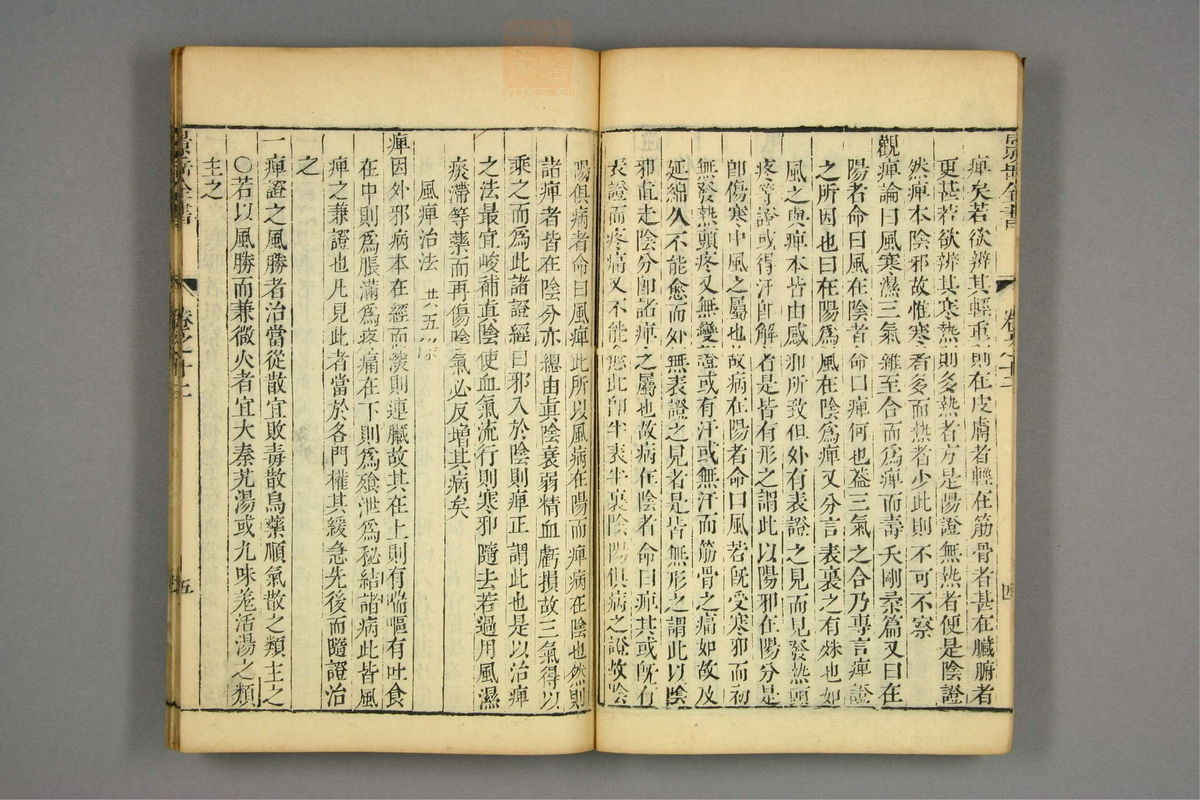 痺矣若欲辨其輕重則在皮膚者輕在筋骨者甚在臟腑者
更甚若欲辨其寒熱則多熱者方是陽證無熱者便是陰證
然痺本陰邪故惟寒者多而熱者少此則不可不察
觀痺論曰風寒濕三氣雜至合而爲痺而壽夭剛柔篇又曰在
陽者命曰風在陰者命曰痺何也蓋三氣之合乃專言痺證
之所因也曰在陽爲風在陰爲痺又分言表裏之有殊也如
風之與痺本皆由感邪所致但外有表證之見而見發熱頭
疼等證或得汗即解者是皆有形之謂此以陽邪在陽分是
即傷寒中風之屬也故病在陽者命曰風若既受寒邪而初
無發熱頭疼又無變證或有汗或無汗而筋骨之痛如故及
延綿久不能愈而外無表證之見者是皆無形之謂此以陰
邪直走陰分即諸痺之屬也故病在陰者命曰痺其或既有
表證而疼痛又不能愈此即半表半裏陰陽俱病之證故陰
陽俱病者命曰風痺此所以風病在陽而痺病在陰也然則
諸痺者皆在陰分亦總由真陰衰弱精血虧損故三氣得以
乘之而爲此諸證經曰邪入於陰則痺正謂此也是以治痺
之法最宜峻補真陰使血氣流行則寒邪隨去若過用風濕
痰滯等藥而再傷陰氣必反增其病矣
風痺治法 共五條
痺因外邪病本在經而深則連臟故其在上則有喘嘔有吐食
在中則爲脹滿爲疼痛在下則爲飧泄爲秘結諸病此皆風
痺之兼證也凡見此者當於各門權其緩急先後而隨證治
之
一痺證之風勝者治當從散宜敗毒散烏藥順氣散之類主之
○若以風勝而兼微火者宜大秦艽湯或九味羌活湯之類
主之
景岳全書
卷之十二
四
景岳全書
卷之十二
五